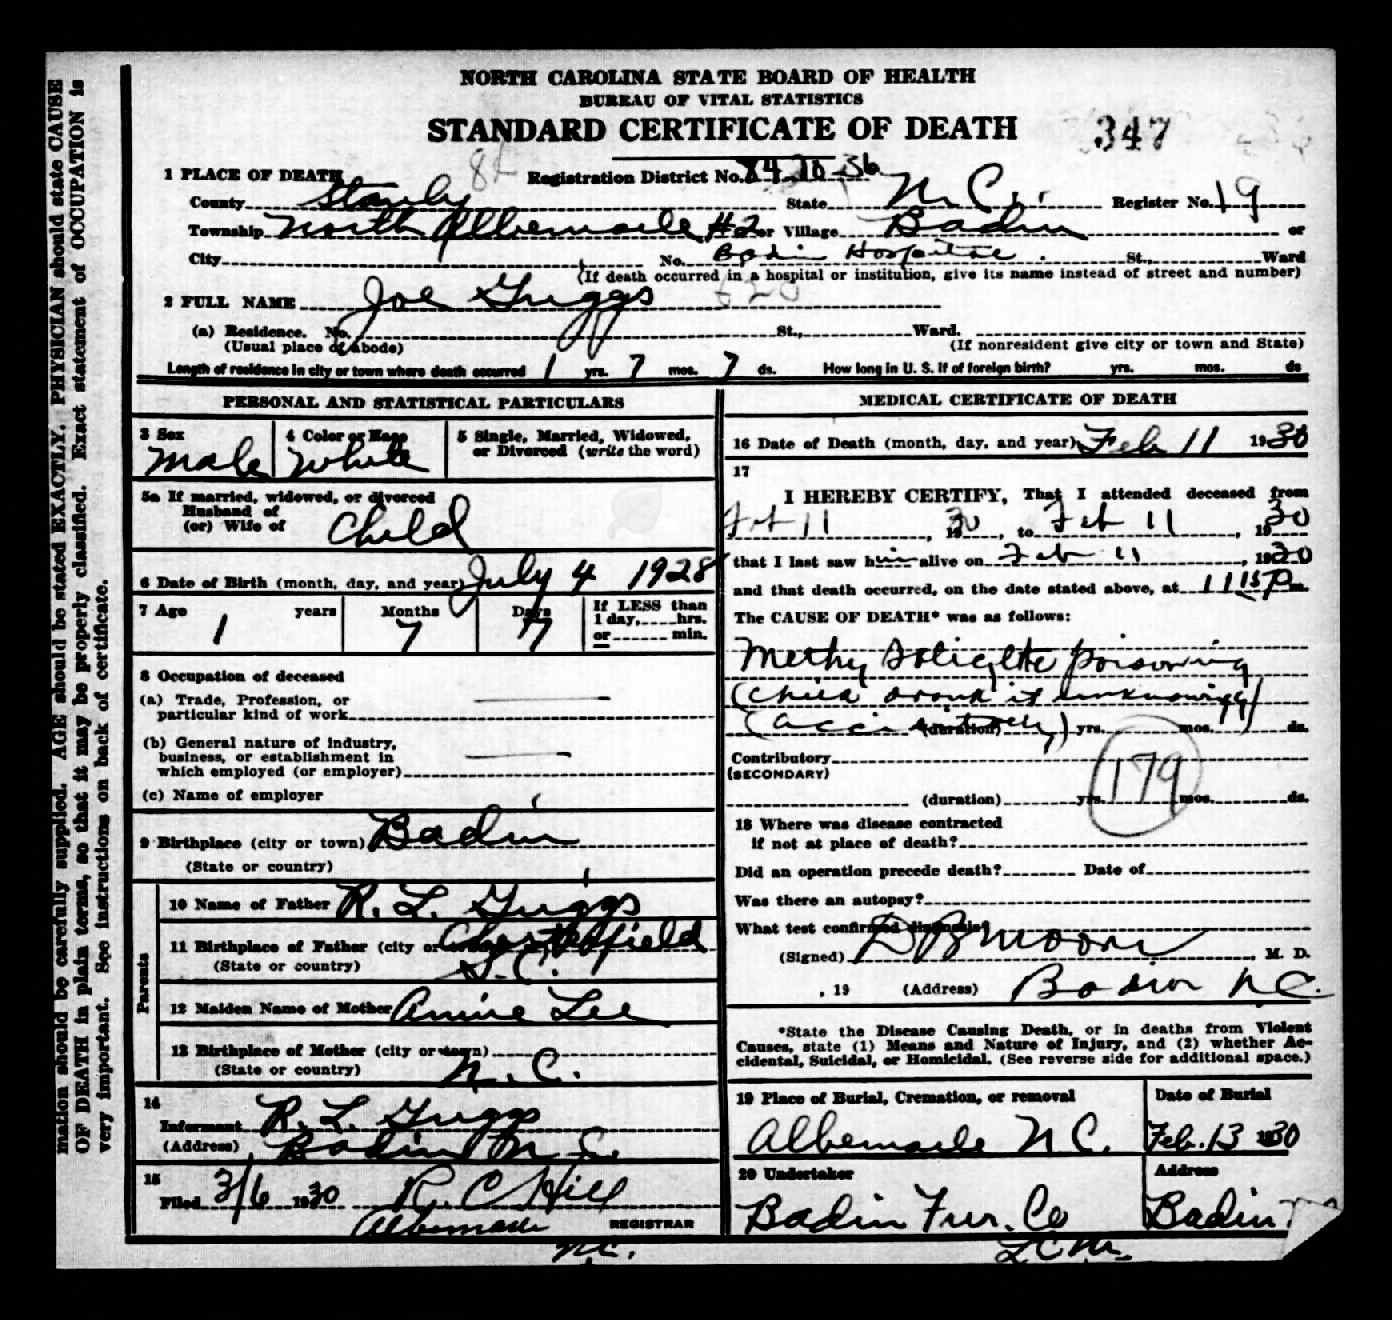 NORTH CAROLINA STATE BOARD OF HEALTH
BUREAU OF VITAL STATISTICS
STANDARD CERTIFICATE OF DEATH 347
1 PLACE OF DEATH Registration District No. 84-20-36
County Stanly State N.C. Register No. 19
Township North Albemarle #2 or Village Badin or
City No. Badin Hospital St., Ward
(If death occurred in a hospital or institution, give its name instead of street and number)
2 FULL NAME Joe Griggs
(a) Residence. No. St., Ward.
(Usual place of abode) (If nonresident give city or town and State)
Length of residence in city or town where death occurred 1 yrs. 7 mos. 7 ds. How long in U. S. if of foreign birth? yrs. mos. ds
PERSONAL AND STATISTICAL PARTICULARS
3 Sex 4 Color or Race 5 Single, Married, Widowed,
or Divorced (write the word)
Male White
5a If married, widowed, or divorced
Husband of
(or) Wife of Child
6 Date of Birth (month, day, and year) July 4 1928
7 Age years Months Days If LESS than
1 day, hrs.
or min.
1 7 7
8 Occupation of deceased
(a) Trade, Profession, or
particular kind of work
(b) General nature of industry,
business, or establishment in
which employed (or employer)
(c) Name of employer
9 Birthplace (city or town) Badin
(State or country)
Parents
10 Name of Father R. L. Griggs
11 Birthplace of Father (city or town) Chesterfield
(State or country) S.C.
12 Maiden Name of Mother Annie Lee
13 Birthplace of Mother (city or town)
(State or country) N.C.
14
Informant R. L. Griggs
(Address) Badin N.C.
15
Filed 3/6 1930 R C Hill
Albemarle REGISTRAR
N.C.
MEDICAL CERTIFICATE OF DEATH
16 Date of Death (month, day, and year) Feb 11 1930
17
I HEREBY CERTIFY, That I attended deceased from
Feb 11, 1930, to Feb 11, 1930
that I last saw him alive on Feb 11, 1930
and that death occurred, on the date stated above, at 11 15 P m.
The CAUSE OF DEATH* was as follows:
Methy Salicylate poisoning
(Child drank it unknowingly)
(accidentally) (duration) yrs. mos. ds.
Contributory
(SECONDARY)
(duration) yrs. mos. ds.
179
18 Where was disease contracted
if not at place of death?
Did an operation precede death? Date of
Was there an autopsy?
What test confirmed diagnosis?
(Signed) D B Moore, M. D.
, 19 (Address) Badin N.C.
*State the Disease Causing Death, or in deaths from Violent
Causes, state (1) Means and Nature of Injury, and (2) whether Ac-
cidental, Suicidal, or Homicidal. (See reverse side for additional space.)
19 Place of Burial, Cremation, or removal Date of Burial
Albemarle N.C. Feb. 13 1930
20 Undertaker Address
Badin Fur. Co Badin
mation should be carefully supplied. AGE should be stated EXACTLY. PHYSICIAN should state CAUSE
OF DEATH in plain terms, so that it may be properly classified. Exact statement of OCCUPATION is
very important. See instructions on back of certificate.